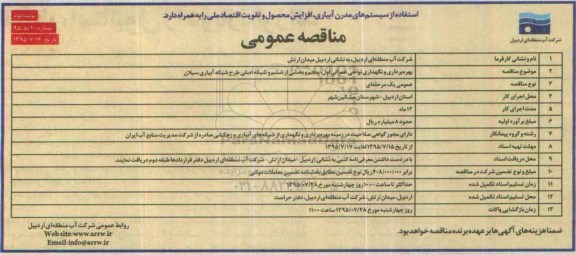 استفاده از سیستم‌های مدرن آبیاری، افزایش محصول و تقویت اقتصاد ملی را به همراه دارد.
مناقصه عمومی
شرکت آب منطقه‌ای اردبیل
نوبت دوم
۱ نام و نشانی کارفرما شرکت آب منطقه‌ای اردبیل، به نشانی اردبیل میدان ارتش
۲ موضوع مناقصه بهره‌برداری و نگهداری نواحی عمرانی اول، پنجم و بخشی از ششم و شبکه اصلی طرح شبکه آبیاری سبلان
۳ نوع مناقصه عمومی یک مرحله‌ای
۴ محل اجرای کار استان اردبیل - شهرستان مشگین شهر
۵ مدت اجرای کار ۱۲ ماه
۶ مبلغ برآورد اولیه حدود ۸ میلیارد ریال
۷ رشته و گروه پیمانکار دارای مجوز گواهی صلاحیت در زمینه بهره‌برداری و نگهداری از شبکه‌های آبیاری و زهکشی صادره از شرکت مدیریت منابع آب ایران
۸ مهلت تهیه اسناد از تاریخ ۱۳۹۵/۷/۱۵ لغایت ۱۳۹۵/۷/۱۷
۹ محل دریافت اسناد با در دست داشتن معرفی‌نامه کتبی به نشانی اردبیل - میدان ارتش - شرکت آب منطقه‌ای اردبیل دفتر قراردادها طبقه دوم دریافت نمایند.
۱۰ مبلغ و نوع تضمین شرکت در مناقصه برابر ۲۰۸/۰۰۰/۰۰۰ ریال نوع تضمین مطابق بخشنامه تضمین معاملات دولتی
۱۱ زمان تسلیم اسناد تکمیل شده حداکثر تا ساعت ۱۰:۰۰ روز چهارشنبه مورخ ۱۳۹۵/۰۷/۲۸
۱۲ محل تسلیم اسناد تکمیل شده اردبیل، میدان ارتش، شرکت آب منطقه‌ای اردبیل، دفتر حراست
۱۳ زمان بازگشایی پاکات روز چهارشنبه مورخ ۱۳۹۵/۰۷/۲۸ ساعت ۱۱:۰۰
ضمنا هزینه‌های آگهی‌ها بر عهده برنده مناقصه خواهد بود.
روابط عمومی شرکت آب منطقه‌ای اردبیل
Web site: www.arrw.ir
Email: info@arrw.ir